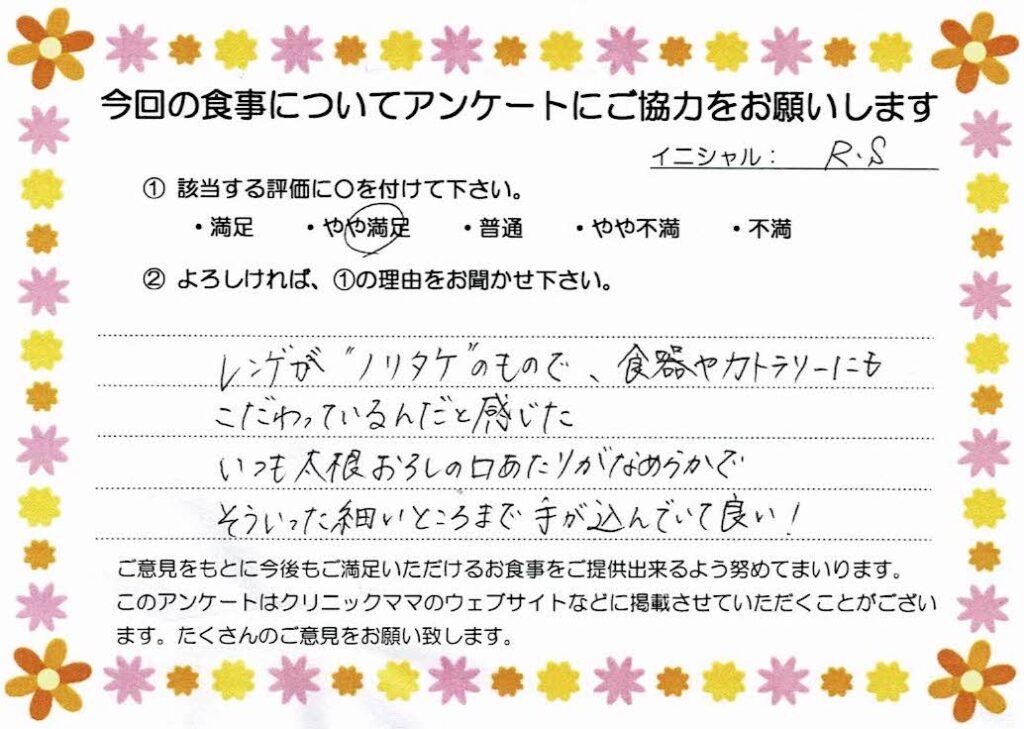 今回の食事についてアンケートにご協力をお願いします
イニシャル： R.S
① 該当する評価に〇を付けて下さい。
・満足 ・やや満足 ・普通 ・やや不満 ・不満
② よろしければ、①の理由をお聞かせ下さい。
レンゲが“ノリタケ”のもので、食器やカトラリーにも
こだわっているんだと感じた
いつも大根おろしの口あたりがなめらかで
そういった細いところまで手が込んでいて良い！
ご意見をもとに今後もご満足いただけるお食事をご提供出来るよう努めてまいります。
このアンケートはクリニックママのウェブサイトなどに掲載させていただくことがござい
ます。たくさんのご意見をお願い致します。